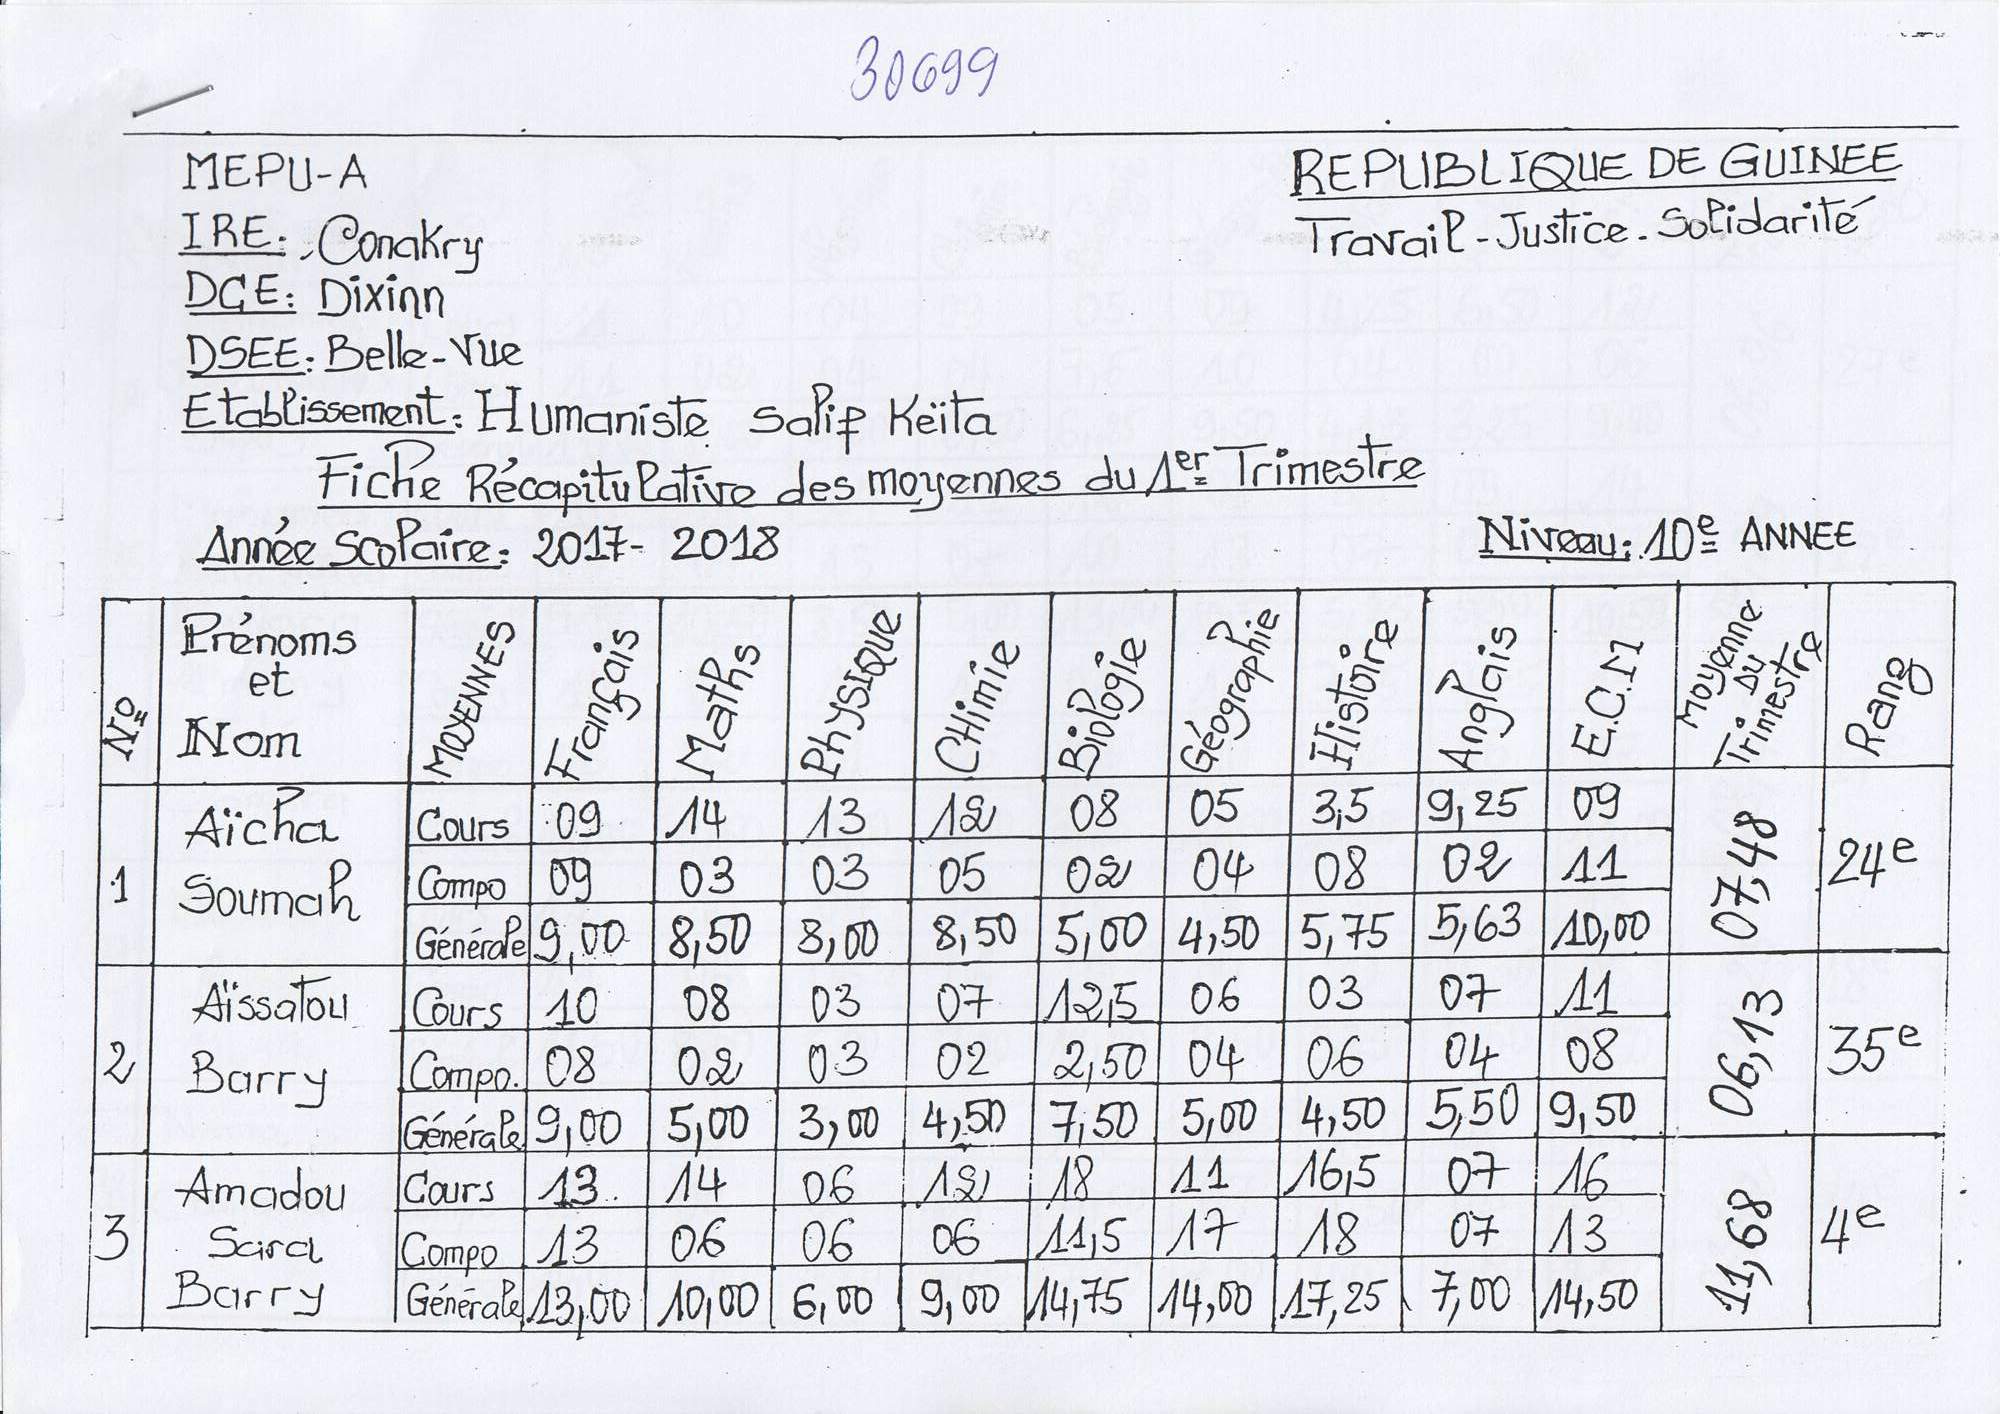 30699
MEPU-A
REPUBLIQUE DE GUINEE
IRE: Conakry
Travail - Justice - Solidarité
DCE: Dixinn
DSEE: Belle-Vue
Etablissement: Humaniste Salif Keïta
Fiche Récapitulative des moyennes du 1er Trimestre
Année Scolaire: 2017- 2018
Niveau: 10e ANNEE
No Prénoms et Nom MOYENNES Français Maths PhYSIQUE Chimie Biologie Géographie Histoire Anglais E.C.M Moyenne du Trimestre Rang
1 Aïcha Soumah 07,48 24e
Cours 09 14 13 12 08 05 3,5 9,25 09
Compo 09 03 03 05 02 04 08 02 11
Générale 9,00 8,50 8,00 8,50 5,00 4,50 5,75 5,63 10,00
2 Aïssatou Barry 06,13 35e
Cours 10 08 03 07 12,5 06 03 07 11
Compo. 08 02 03 02 2,50 04 06 04 08
Générale 9,00 5,00 3,00 4,50 7,50 5,00 4,50 5,50 9,50
3 Amadou Sara Barry 11,68 4e
Cours 13 14 06 12 18 11 16,5 07 16
Compo 13 06 06 06 11,5 17 18 07 13
Générale 13,00 10,00 6,00 9,00 14,75 14,00 17,25 7,00 14,50